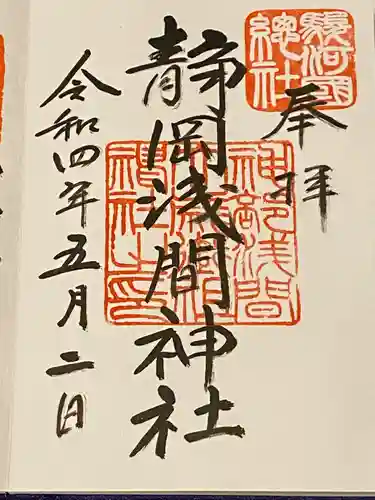 奉拝
駿河國
總社
静岡浅間神社
神部浅間
神社之印
令和四年五月二日